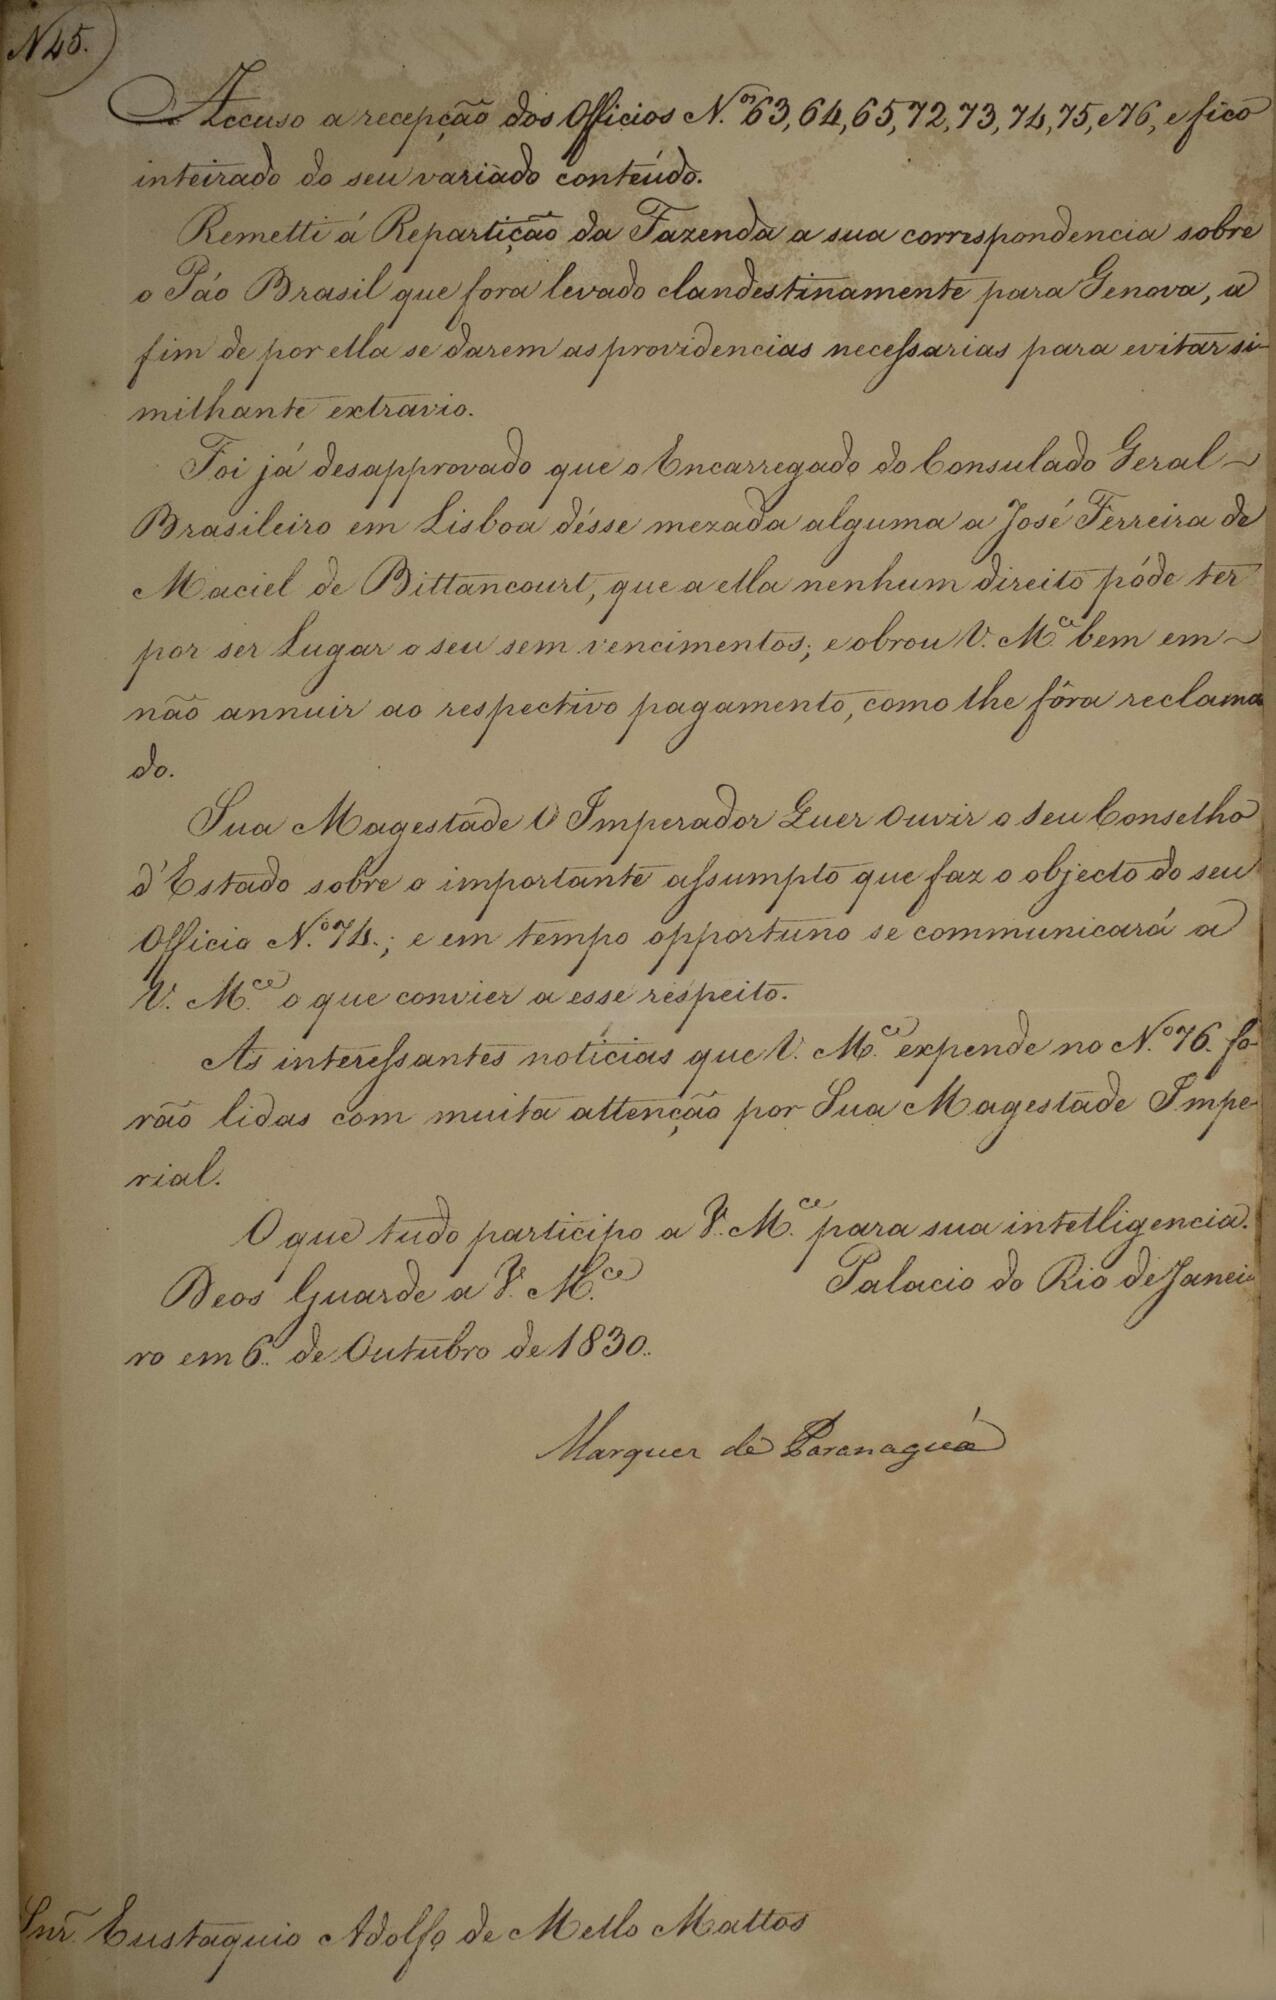 N 45.
Accuso a recepção dos Officios N.os 63, 64, 65, 72, 73, 74, 75, e 76, e fico
inteirado do seu variado conteúdo.
Remetti á Repartição da Fazenda a sua correspondencia sobre
o Páo Brasil que fora levado clandestinamente para Genova, a
fim de por ella se darem as providencias necessarias para evitar si-
milhante extravio.
Foi já desapprovado que o Encarregado do Consulado Geral
Brasileiro em Lisboa désse mezada alguma a José Ferreira de
Maciel de Bittancourt, que a ella nenhum direito póde ter
por ser Lugar o seu sem vencimentos; e obrou V. M.ce bem em
não annuir ao respectivo pagamento, como lhe fôra reclama
do.
Sua Magestade O Imperador Quer ouvir o seu Conselho
d'Estado sobre o importante assumpto que faz o objecto do seu
Officio N.o 74.; e em tempo opportuno se communicará a
V. M.ce o que convier a esse respeito.
As interessantes noticias que V. M.ce expende no N.o 76. fo-
rão lidas com muita attenção por Sua Magestade Impe-
rial.
O que tudo participo a V. M.ce para sua intelligencia.
Deos Guarde a V. M.ce Palacio do Rio de Janei
ro em 6. de Outubro de 1830.
Marquez de Paranaguá
Snr. Eustaquio Adolfo de Mello Mattos